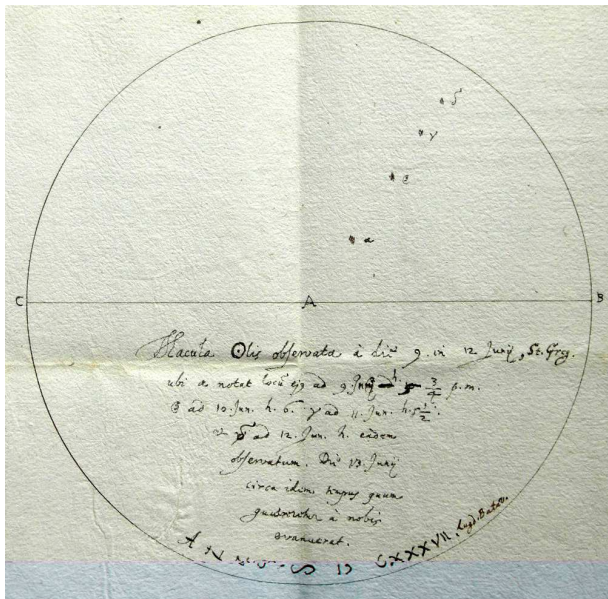 δ
γ
β
α
C A B
Macula ☉lis observata à die 9. in 12 Junij, St. Greg.
ubi α notat locū ejꝰ ad 9. Junij h. 3/4 p.m.
β ad 10. Jun. h. 6. γ ad 11. Jun. h. 5 1/2.
δ ad 12. Jun. h. eadem
observatum. Die 13. Junij
circa idem tempus quum
quæreretur à nobis
evanuerat.
Lugd. Batav.